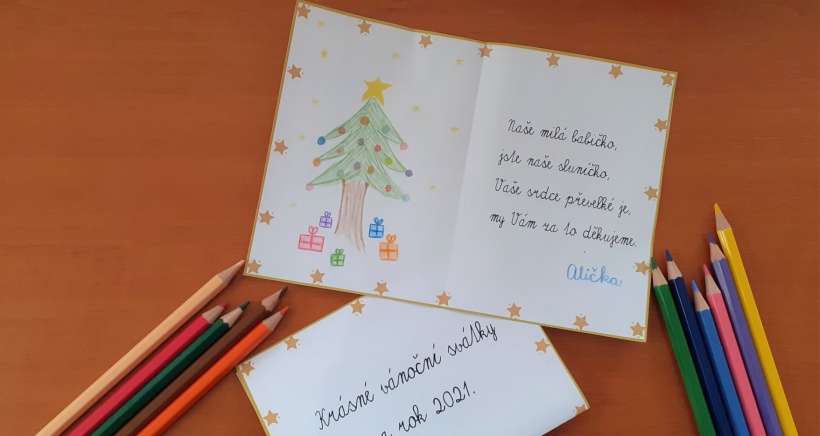 Naše milá babičko,
jste naše sluníčko,
Vaše srdce převelké je,
my Vám za to děkujeme.
Alička
Krásné vánoční svátky
rok 2021.